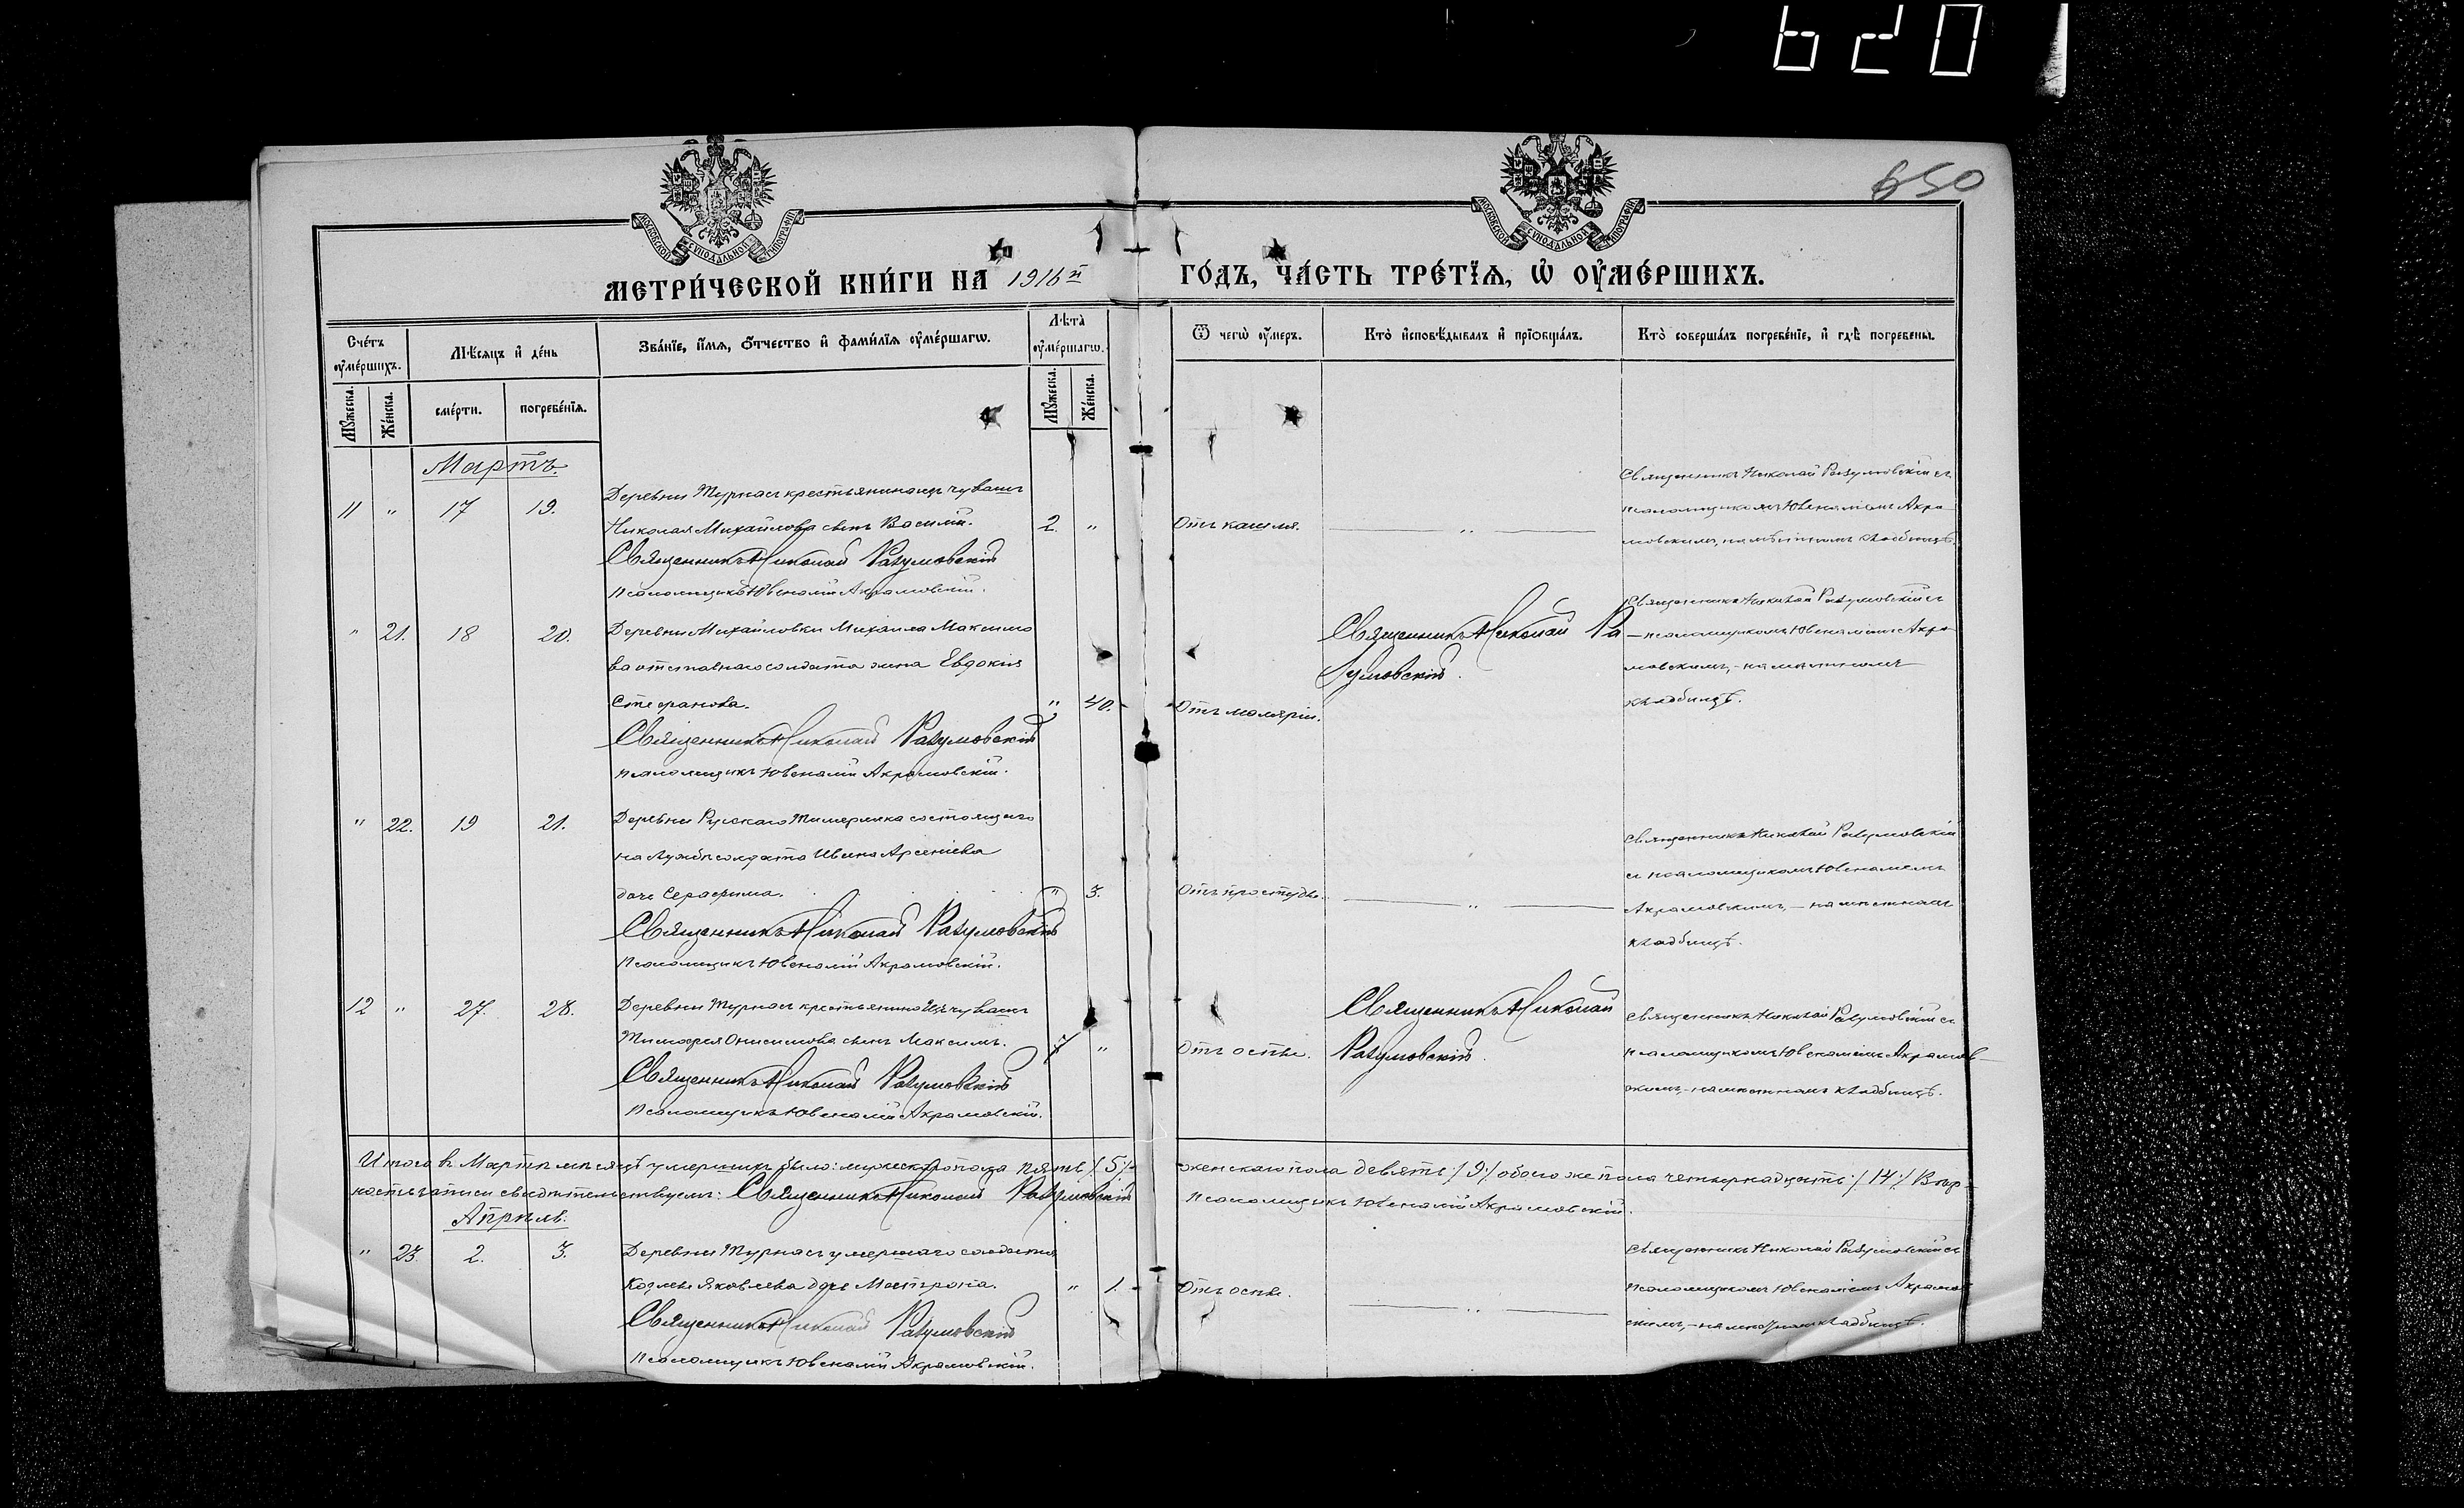 620
650
МОСКОВСКОЙ СѴНОДАЛЬНОЙ ТИПОГРАФІИ
МОСКОВСКОЙ СѴНОДАЛЬНОЙ ТИПОГРАФІИ
МЕТРИ́ЧЕСКОЙ КНИ́ГИ НА 1916й ГО́ДЪ, ЧА́СТЬ ТРЕ́ТЇѦ, Ѡ҆ ОУ҆МЕ́РШИХЪ.
Сче́тъ оу҆ме́ршихъ.
Мꙋ́жеска.
Же́нска.
Мѣ́сѧцъ и҆ де́нь
сме́рти.
погребе́нїѧ.
Зва́нїе, и҆́мѧ, ѻ҆́тчество и҆ фами́лїѧ оу҆ме́ршагѡ.
Лѣ́та оу҆ме́ршагѡ.
Мꙋ́жеска.
Же́нска.
Ѿ чегѡ̀ оу҆́меръ.
Кто̀ и҆сповѣ́дывалъ и҆ прїѡбща́лъ.
Кто̀ соверша́лъ погребе́нїе, и҆ гдѣ̀ погребены̀.
Мартъ.
11 " 17 19. Деревни Турнасъ крестьянина изъ чувашъ
Николая Михайлова сынъ Василій. 2. " Отъ кашля. — " —
Священникъ Николай Разумовскій
Псаломщикъ Ювеналій Акрамовскій.
Священникъ Николай Разумовскій съ
псаломщикомъ Ювеналіемъ Акра
мовскимъ, на мѣстномъ кладбищѣ.
" 21. 18 20. Деревни Михайловки Михаила Максимо
ва отставного солдата жена Евдокія
Стефанова. " 40. Отъ маляріи.
Священникъ Николай Разумовскій
Псаломщикъ Ювеналій Акрамовскій.
Священникъ Николай Ра
зумовскій.
Священникъ Николай Разумовскій съ
псаломщикомъ Ювеналіемъ Акра
мовскимъ, - на мѣстномъ
кладбищѣ.
" 22. 19 21. Деревни Русскаго Тимерлика состоящаго
на службѣ солдата Ивана Арсеніева
дочь Серафима. " 3. Отъ простуды. — " —
Священникъ Николай Разумовскій
Псаломщикъ Ювеналій Акрамовскій.
Священникъ Николай Разумовскій
съ псаломщикомъ Ювеналіемъ
Акрамовскимъ, - на мѣстномъ
кладбищѣ.
12 " 27. 28. Деревни Турнасъ крестьянина изъ чувашъ
Тимофея Онисимова сынъ Максимъ. 7 " Отъ оспы.
Священникъ Николай Разумовскій
Псаломщикъ Ювеналій Акрамовскій.
Священникъ Николай
Разумовскій.
Священникъ Николай Разумовскій съ
псаломщикомъ Ювеналіемъ Акрамов
скимъ, - на мѣстномъ кладбищѣ.
Итого въ Мартѣ мѣсяцѣ умершихъ было: мужескаго пола пять /5./ женскаго пола девять /9./ обоего же пола четырнадцать /14./ Вѣр-
ность записи свидѣтельствуемъ: Священникъ Николай Разумовскій Псаломщикъ Ювеналій Акрамовскій.
Апрѣль.
" 23. 2. 3. Деревни Турнасъ умершаго солдата
Козмы Яковлева дочь Матрона. " 1. Отъ оспы. — " —
Священникъ Николай Разумовскій
Псаломщикъ Ювеналій Акрамовскій.
Священникъ Николай Разумовскій съ
псаломщикомъ Ювеналіемъ Акрамов
скимъ, - на мѣстномъ кладбищѣ.